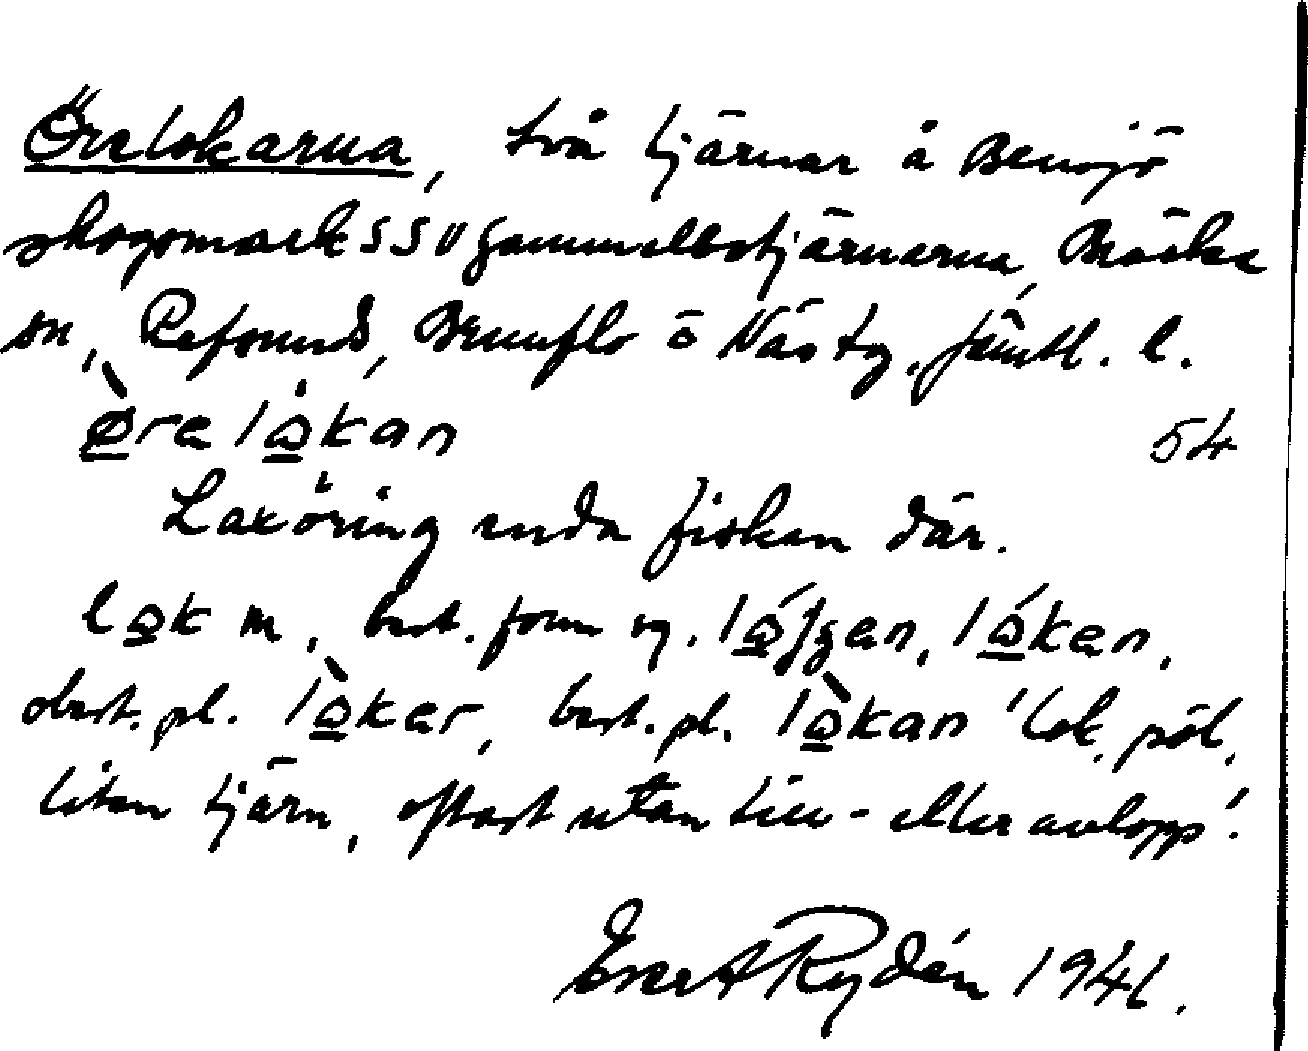 Örelokarna, två tjärnar å Bensjö
skogsmark SSV Gammelbotjärnarna, Bräcke
sn, Refsunds, Brunflo o Näs tg, Jämtl. l.
ø̀relò̱kan 54
Laxöring enda fisken där.
lo̱k m, best. form sg. ló̱ʃʒen, ló̱ken,
obest. pl. lò̱ker, best. pl. lò̱kan 'lok, pöl,
liten tjärn, oftast utan till- eller avlopp'.
Evert Rydén 1941.